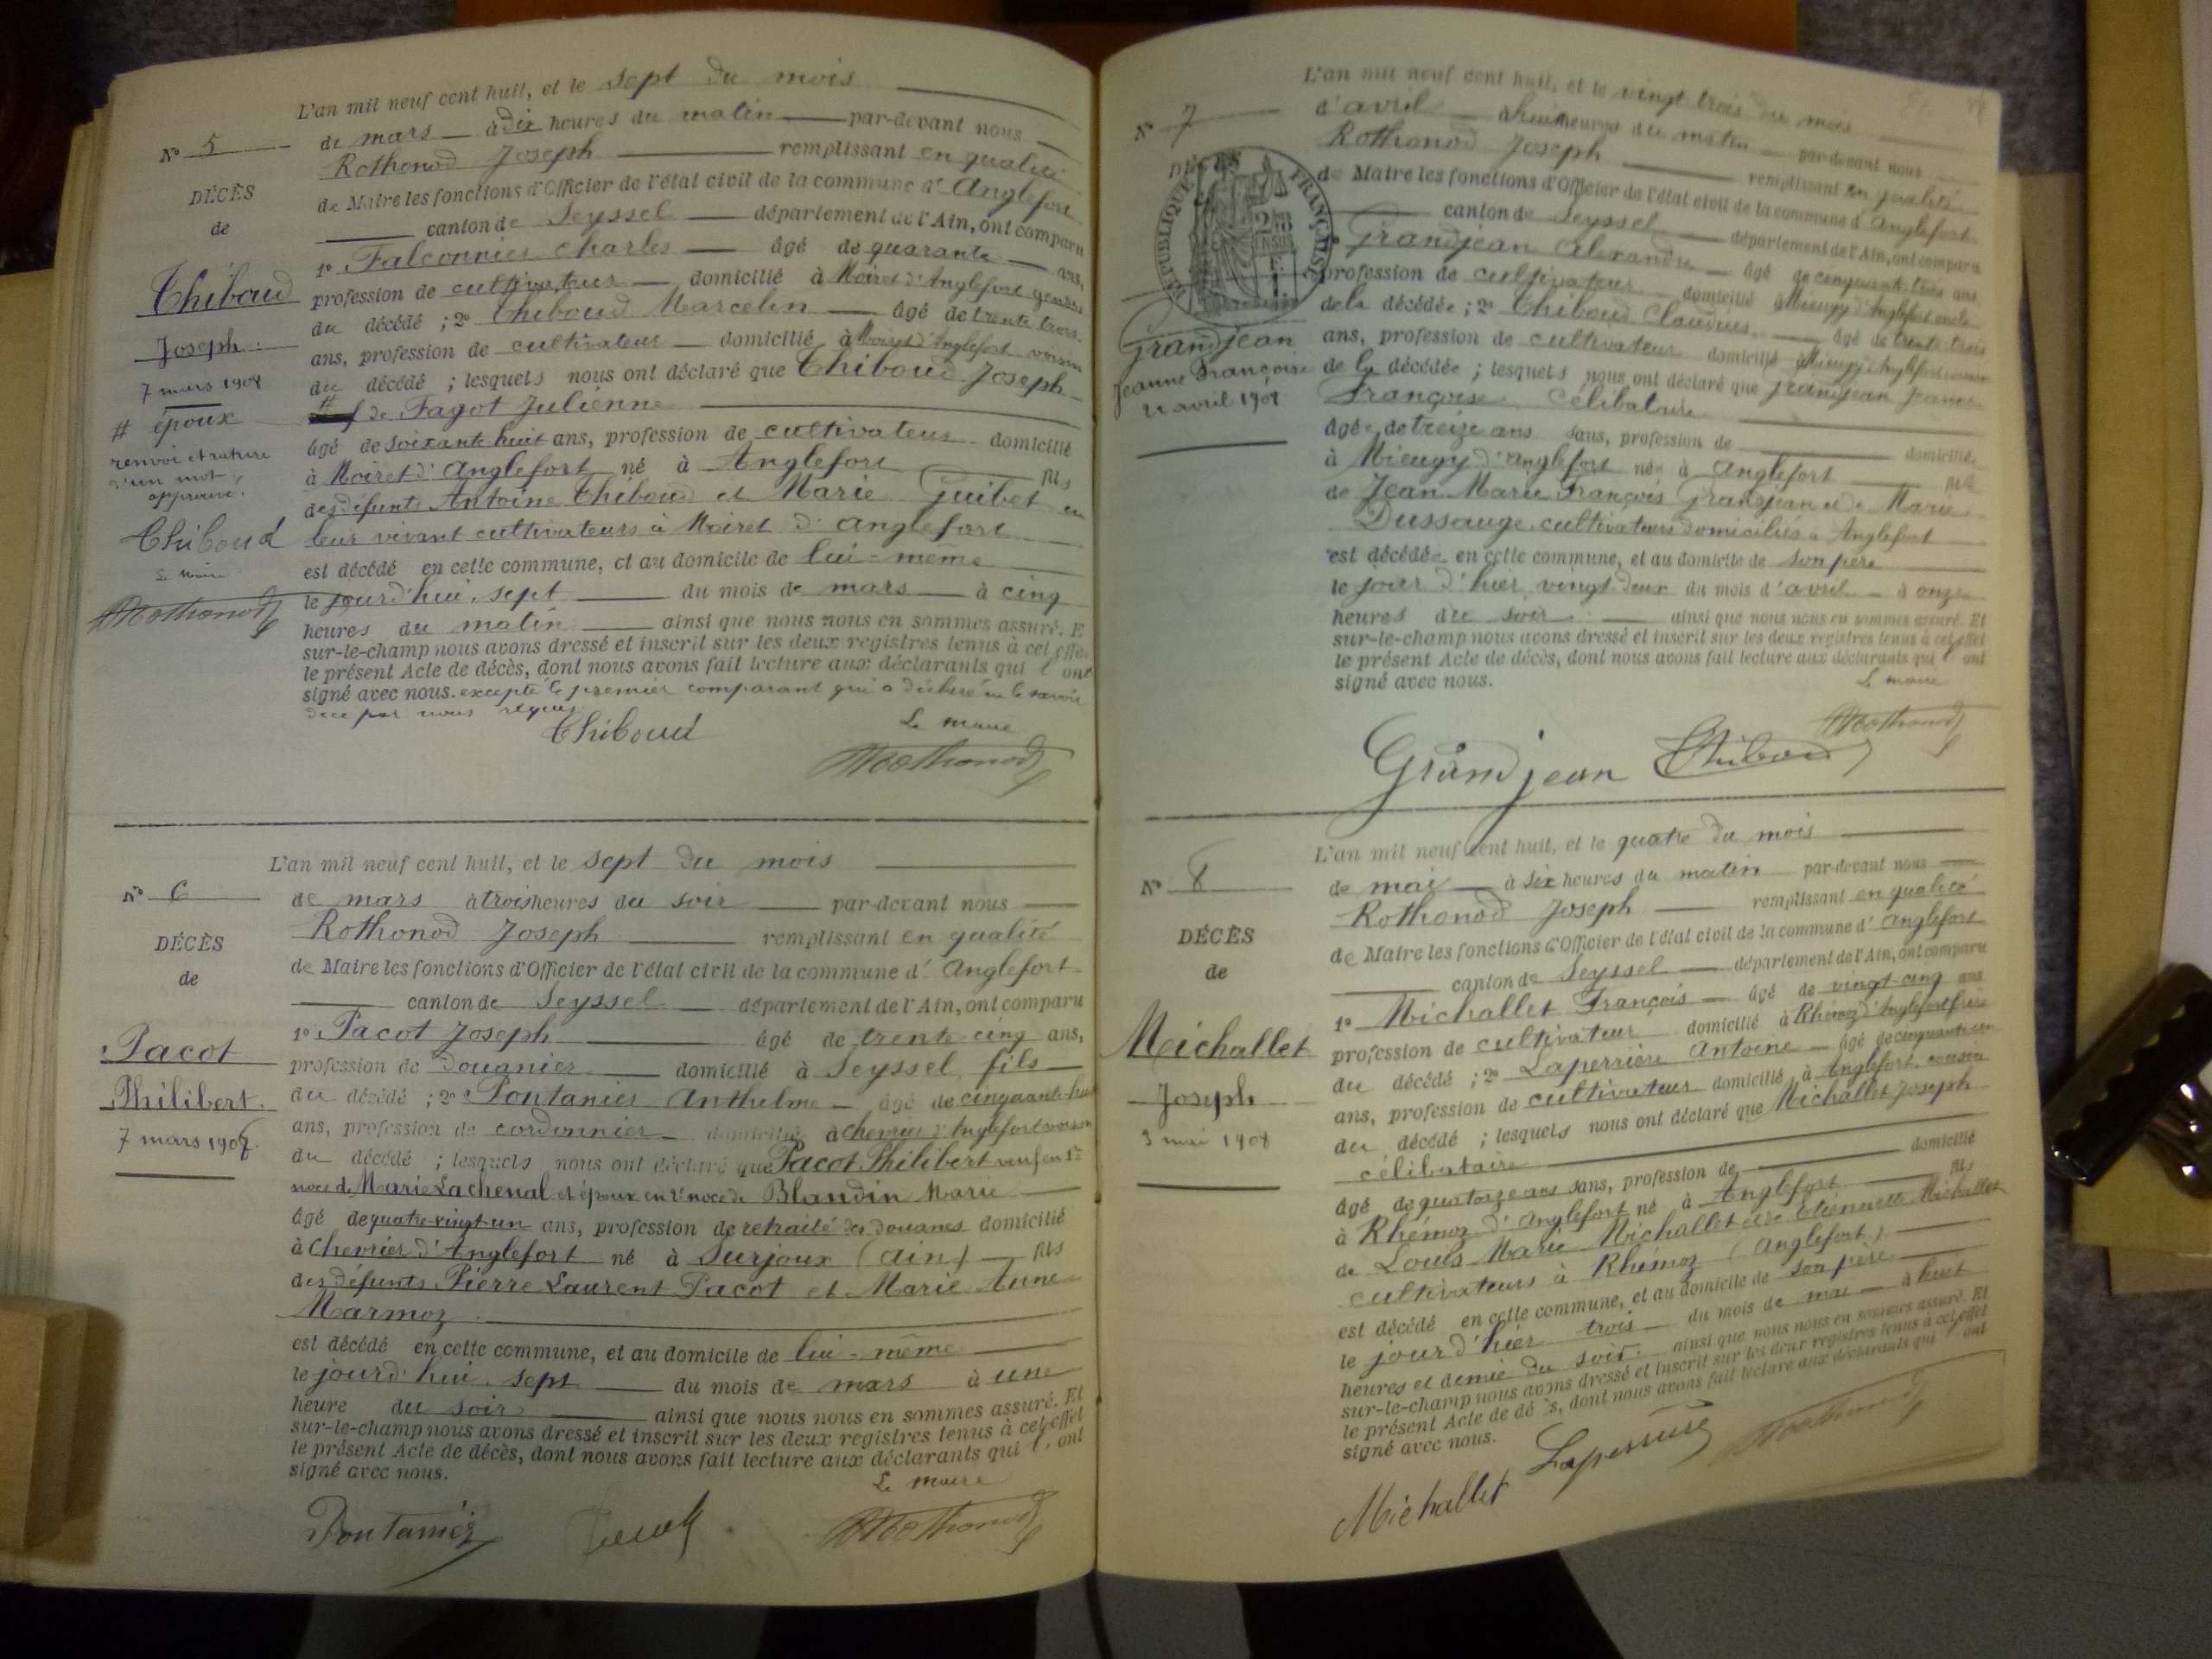 L'an mil neuf cent huit, et le sept du mois
N° 5
de mars à dix heures du matin par-devant nous
Rothonod Joseph remplissant en qualité
DÉCÈS
de Maire les fonctions d'Officier de l'état civil de la commune d'Anglefort
de
canton de Seyssel département de l'Ain, ont comparu
1° Falconnier Charles âgé de quarante ans,
Thiboud
profession de cultivateur domicilié à Moiret d'Anglefort gendre
du décédé ; 2° Thiboud Marcelin âgé de trente trois
Joseph
ans, profession de cultivateur domicilié à Moiret d'Anglefort voisin
7 mars 1908
du décédé ; lesquels nous ont déclaré que Thiboud Joseph
# époux
# de Fagot Julienne
renvoi et rature
d'un mot
approuvé.
âgé de soixante huit ans, profession de cultivateur domicilié
à Moiret d'Anglefort né à Anglefort fils
des défunts Antoine Thiboud et Marie Guibet en
Thiboud
leur vivant cultivateurs à Moiret d'Anglefort
Le Maire
est décédé en cette commune, et au domicile de lui-même
Rothonod
le jourd'hui, sept du mois de mars à cinq
heures du matin ainsi que nous nous en sommes assuré. E
sur-le-champ nous avons dressé et inscrit sur les deux registres tenus à cet effe
le présent Acte de décès, dont nous avons fait lecture aux déclarants qui l'ont
signé avec nous. excepté le premier comparant qui a déclaré ne le savoir
de ce par nous requis.
Thiboud
Le maire
Rothonod
L'an mil neuf cent huit, et le sept du mois
N° 6
de mars à trois heures du soir par-devant nous
Rothonod Joseph remplissant en qualité
DÉCÈS
de Maire les fonctions d'Officier de l'état civil de la commune d'Anglefort
de
canton de Seyssel département de l'Ain, ont comparu
1° Pacot Joseph âgé de trente-cinq ans,
Pacot
profession de douanier domicilié à Seyssel fils
Philibert.
du décédé ; 2° Pontanier Anthelme âgé de cinquante-huit
7 mars 1908.
ans, profession de cordonnier domicilié à Chevrier d'Anglefort voisin
du décédé ; lesquels nous ont déclaré que Pacot Philibert veuf en 1re
noce de Marie Lachenal et époux en 2e noce de Blandin Marie
âgé de quatre-vingt-un ans, profession de retraité des douanes domicilié
à Chevrier d'Anglefort né à Surjoux (Ain) fils
des défunts Pierre Laurent Pacot et Marie Anne
Marmoz
est décédé en cette commune, et au domicile de lui-même
le jourd'hui, sept du mois de mars à une
heure du soir ainsi que nous nous en sommes assuré. Et
sur-le-champ nous avons dressé et inscrit sur les deux registres tenus à cet effet
le présent Acte de décès, dont nous avons fait lecture aux déclarants qui l'ont
signé avec nous.
Le maire
Pontanier Pacot Rothonod
L'an mil neuf cent huit, et le vingt trois du mois
N° 7
d'avril à huit heures du matin par-devant nous
Rothonod Joseph remplissant en qualité
DÉCÈS
RÉPUBLIQUE FRANÇAISE
de Maire les fonctions d'Officier de l'état civil de la commune d'Anglefort
canton de Seyssel département de l'Ain, ont comparu
1° Grandjean Alexandre âgé de cinquante trois ans
profession de cultivateur domicilié à Mieugy d'Anglefort oncle
de la décédée ; 2° Thiboud Claudius âgé de trente trois
Grandjean
ans, profession de cultivateur domicilié à Mieugy d'Anglefort voisin
Jeanne Françoise
de la décédée ; lesquels nous ont déclaré que Grandjean Jeanne
22 avril 1908
Françoise célibataire
âgée de treize ans sans, profession de domiciliée
à Mieugy d'Anglefort née à Anglefort fille
de Jean Marie François Grandjean et de Marie
Dussauge cultivateurs domiciliés à Anglefort
est décédée en cette commune, et au domicile de son père
le jour d'hier vingt-deux du mois d'avril à onze
heures du soir ainsi que nous nous en sommes assuré. Et
sur-le-champ nous avons dressé et inscrit sur les deux registres tenus à cet effet
le présent Acte de décès, dont nous avons fait lecture aux déclarants qui l'ont
signé avec nous.
Le maire
Rothonod
Grandjean Thiboud
L'an mil neuf cent huit, et le quatre du mois
N° 8
de mai à six heures du matin par-devant nous
Rothonod Joseph remplissant en qualité
DÉCÈS
de Maire les fonctions d'Officier de l'état civil de la commune d'Anglefort
de
canton de Seyssel département de l'Ain, ont comparu
1° Michallet François âgé de vingt-cinq ans
Michallet
profession de cultivateur domicilié à Rhémoz d'Anglefort frère
du décédé ; 2° Laperrière Antoine âgé de cinquante un
Joseph
ans, profession de cultivateur domicilié à Anglefort cousin
3 mai 1908
du décédé ; lesquels nous ont déclaré que Michallet Joseph
célibataire
âgé de quatorze ans sans, profession de domicilié
à Rhémoz d'Anglefort né à Anglefort fils
de Louis Marie Michallet et de Etiennette Michallet
cultivateurs à Rhémoz (Anglefort)
est décédé en cette commune, et au domicile de son père
le jour d'hier trois du mois de mai à huit
heures et demie du soir ainsi que nous nous en sommes assuré. Et
sur-le-champ nous avons dressé et inscrit sur les deux registres tenus à cet effet
le présent Acte de décès, dont nous avons fait lecture aux déclarants qui l'ont
signé avec nous.
Michallet Laperrière Rothonod